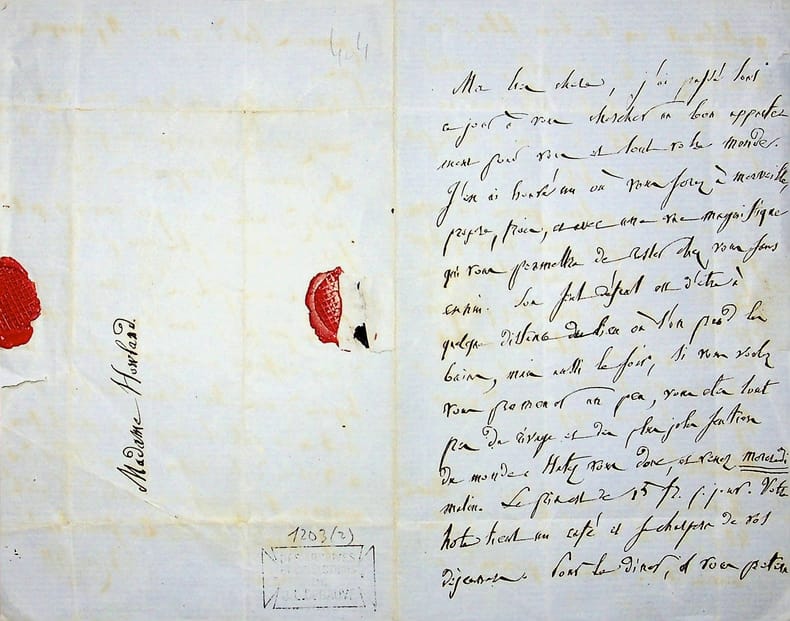 404
Madame Howland.
1203(2)
Ma bien chère, j'ai passé tous
ce jour à vous chercher un bon apparte-
ment pour vous et tout votre monde.
J'en ai trouvé un où vous serez à merveille,
propre, frais, et avec une vue magnifique
qui vous permettra de rester chez vous sans
ennui. Son seul défaut est d'être à
quelque distance du lieu où l'on prend les
bains, mais aussi le soir, si vous voulez
vous promener un peu, vous êtes tout
près du rivage et des plus jolis sentiers
du monde. Hatez vous donc, et venez mercredi
matin. Le prix est de 15 f. p. jour. Votre
hote tient un café et se chargera de vos
déjeuners. Pour le diner, il vous